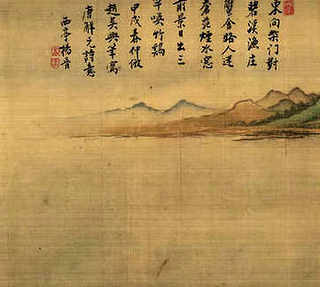 東向柴門對
碧溪漁庄
蟹舍路人迷
蒼茫煙水窓
前景日出三
竿喚竹鷄
甲戌春仲倣
趙吳興筆寫
唐解元詩意
西亭楊晋